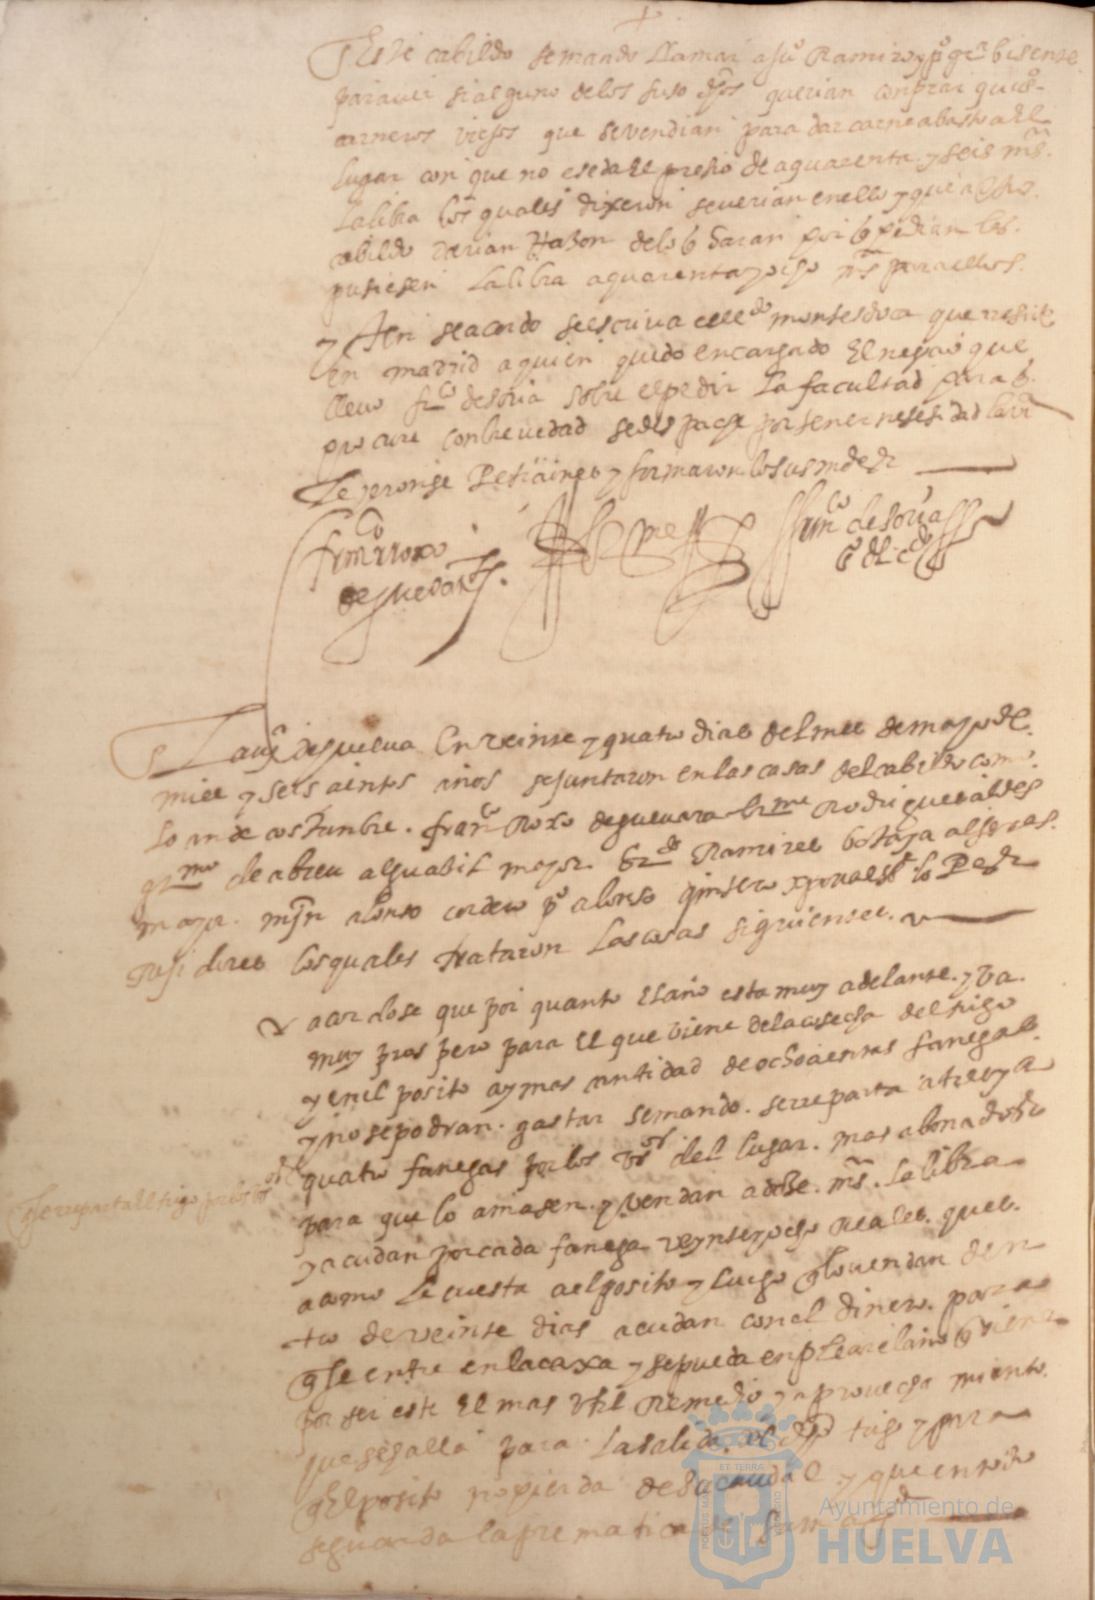 En este cabildo se mando llamar a juº Ramirez y pº gra bisente
para ver si alguno de los suso dhos querian conprar qui°s
carneros viejos que se vendian para dar carne abasto a el
lugar con que no eseda el presio de a quarenta y seis mrs
la libra los quales dixeron se verian en ello y que a este
cabildo darian Razon de lo q harian por q pidian les
pusiesen la libra a quarenta y ocho mrs para ellos
y Asi se acordo se escriva a el ldo montesdoca que reside
en madrid a quien quedo encargado El negocio que
llevo frco de soria sobre el pedir la facultad para q
procure con brevedad se despache por tener nesesidad la vª
frco Roxo
de guevara
frco de soria
La vª de guelva En veinte y quatro dias del mes de mayo de
mill y seis cientos años se juntaron en las casas del cabildo como
lo an de costunbre. franco Roxo de guevara Rodrigues aldes
grmo de abreu alguasil mayor. Ramires botaja alferes
mayor. min alonso cordero pº alonso quintero
rejidores los quales trataron las cosas siguientes
acordose que por quanto El año esta muy adelante y va
muy prospero para El que viene de la cosecha del trigo
y en el posito ay mas cantidad de ochocientas fanegas
y no se podran gastar se mando se reparta a tres y a
quatro fanegas por los vos del lugar mas abonados
para que lo amasen y vendan a doze mrs la libra
y acudan por cada fanega veynte y ocho Reales ques
a como le cuesta a el posito y luego q lo vendan den
tro de veinte dias acudan con el dinero para
q se entre en la caxa y se pueda enplear el año q viene
por ser este El mas util Remedio y aprovechamiento
que se halla para la salida del dho trigo y para
q El posito no pierda de su caudal y que en todo
se guarda la prematica de su magd
q se reparta el trigo por los vos
ET TERRA
Ayuntamiento de
HUELVA